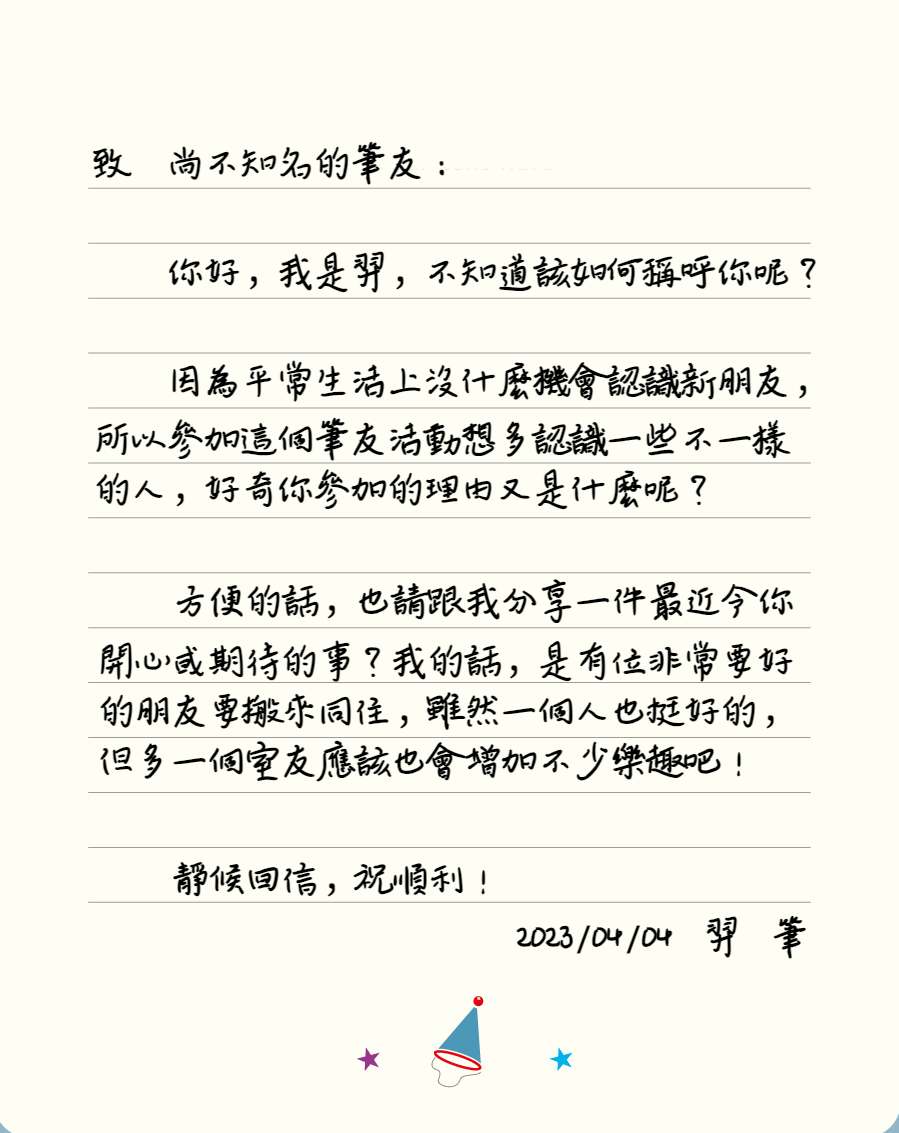 致　尚不知名的筆友：
你好，我是羿，不知道該如何稱呼你呢？
因為平常生活上沒什麼機會認識新朋友，
所以參加這個筆友活動想多認識一些不一樣
的人，好奇你參加的理由又是什麼呢？
方便的話，也請跟我分享一件最近令你
開心或期待的事？我的話，是有位非常要好
的朋友要搬來同住，雖然一個人也挺好的，
但多一個室友應該也會增加不少樂趣吧！
靜候回信，祝順利！
2023/04/04　羿　筆